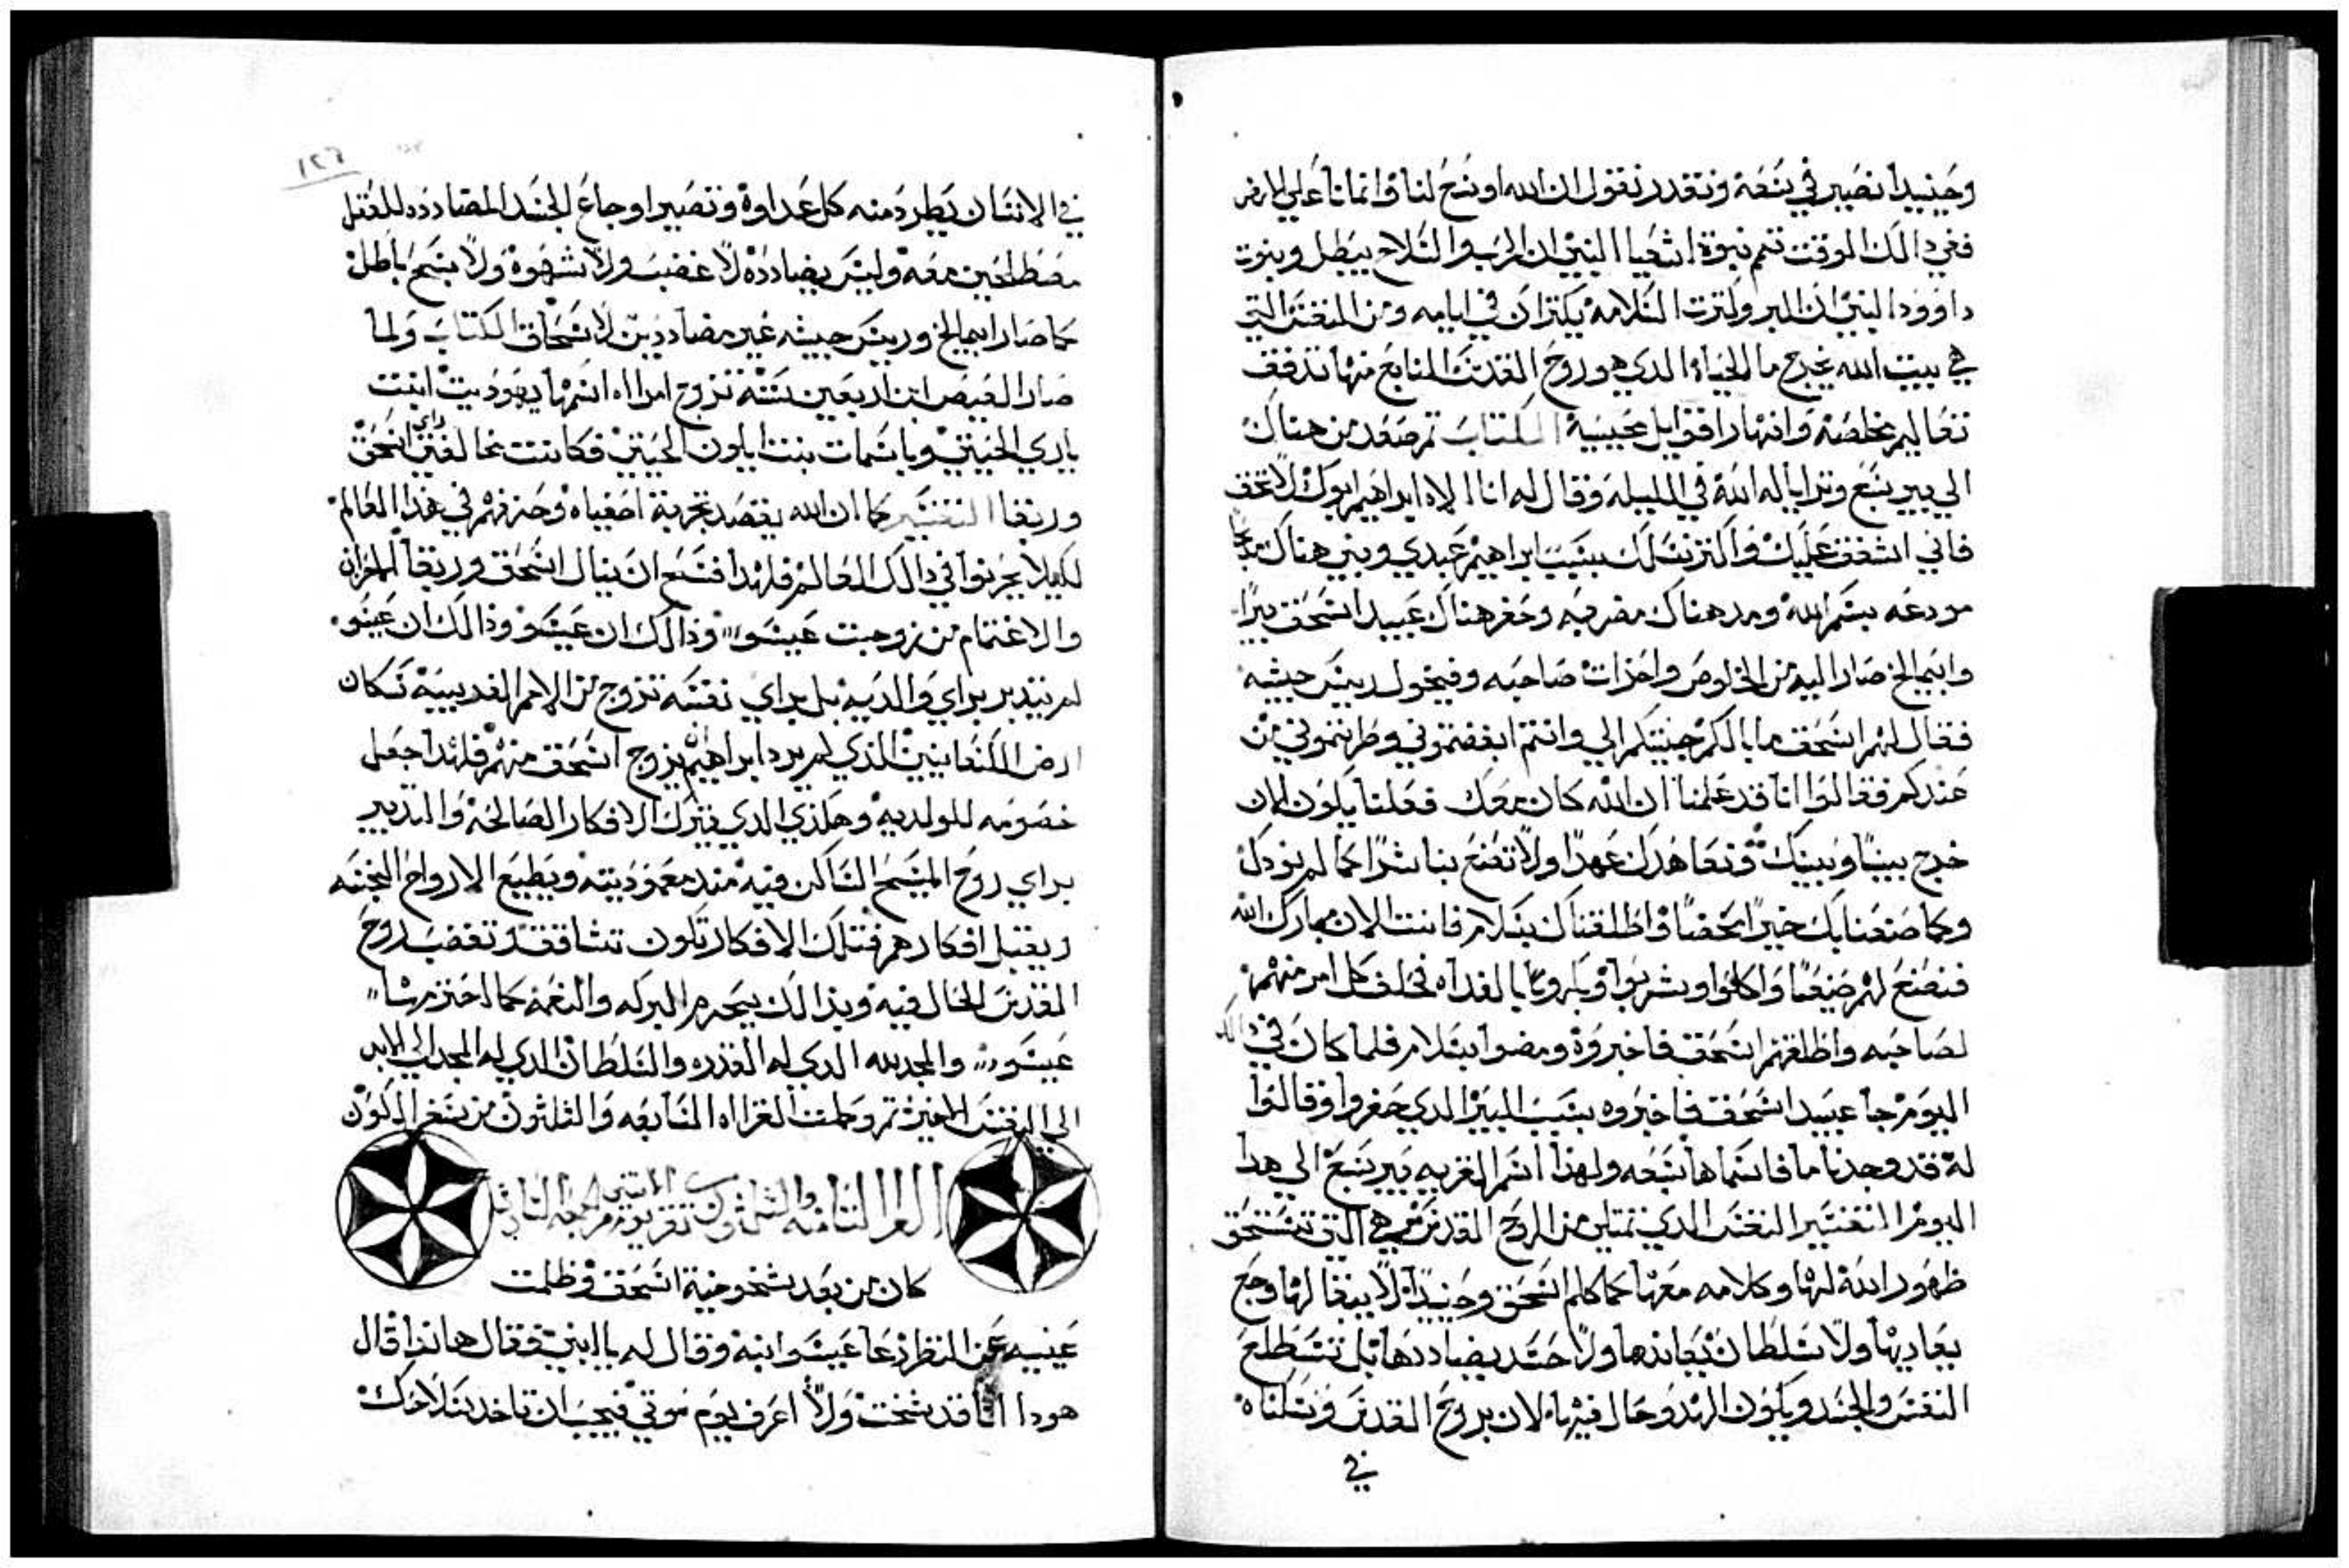 وحينيدا نصير في سعة ونقدر نقول ان الله اوسع لنا وانمانا علي الارض
ففي دالك الوقت تتم نبوة اشعيا النبي ان الحرب والسلاح يبطل وبنوت
داوود النبي ان البر وكترت السلامه يكتران في ايامه ومن النفس التي
هي بيت الله يخرج ما الحياه الدي هو روح القدس النابع منها تدفق
تعاليم مخلصة وانهار اقاويل محييية الكتاب تم صعد من هناك
الي بير سبع وترايا له الله في الليله وقال له انا الاه ابراهيم ابوك لا تخف
فاني اشفق عليك واكتر نسلك بسبب ابراهيم عبدي وبني هناك مدبحا
ودعه بسم الله ومد هناك مضربه وحفر هناك عبيد اسحق بيرا
وابيمالخ صار اليه من الخلوص واحزات صاحبه وفيخول رييس جيشه
فقال لهم اسحق ما بالكم جيتكم الي وانتم ابغضتموني وطردتموني من
عندكم فقالوا انا قد علمنا ان الله كان معك فقلنا يكون الان
خرج بيننا وبينك ونعاهدك عهدا ولا تصنع بنا شرا كما لم نودك
وكما صنعنا بك خيرا محضا واطلقناك بسلام فانت الان مبارك الله
فصنع لهم صنيعا واكلوا وشربوا وبكروا بالغداه فحلف كل امر منهم
لصاحبه واطلقهم اسحق فاخبروة ومضوا بسلام فلما كان في دالك
اليوم جا عبيد اسحق فاخبروه بسبب البير الدي حفروا وقالوا
له قد وجدنا ما فاسماها سبعه ولهدا اسم القريه بير سبع الي هدا
اليوم التفسير النفس الدي تمتلي من الروح القدس هي التي تستحق
ظهور الله لها وكلامه معها كما كلم اسحق وحينيدا لا يبقا لها وجع
يعاديها ولا سلطان يعاندها ولا حسد يضاددها بل تسطلح
النفس والجسد ويكون الهدو حال فيها لان بروح القدس وسكناه
في
١٢٦
في الانسان يطرد منه كل عداوة وتصير اوجاع الجسد المضادده للعقل
مصطلحين معه وليس يضادده لا غضب ولا شهوة ولا سبح باطل
كما صار ابيمالخ ورييس جيشه غير مضاددين لاسحاق الكتاب ولما
صار العيص ابن اربعين سنة تزوج امراه اسمها يهوديت ابنت
باري الحيتي وباسمات بنت ايلون الحيتي فكانت مخالفتي راي اسحق
وربقا التفسير كما ان الله يقصد تجربة اصفياه وحزنهم في هدا العالم
لكيلا يحزنوا في دالك العالم فلهدا فسح ان ينال اسحق وربقا الحزان
والاغتمام من زوجت عيسو وذالك ان عيسو وذالك ان عيسو
لم يتدبر براي والديه بل براي نفسه تزوج من الامم الغريبية سكان
ارض الكنعانيين الذي لم يرد ابراهيم يزوج اسحق منهم فلهدا جعل
خصومه للولديه وهكذي الدي يترك الافكار الصالحة والتدبير
براي روح المسيح الساكن فيه مند معموديته ويطيع الارواح النجسه
ويقبل افكارهم فتلك الافكار تكون تشاقق وتغضب روح
القدس الحال فيه وبذالك يحرم البركه والنعمة كما احترم منها
عيسو والمجد لله الدي له القدره والسلطان الدي له المجد الي الابد
الي النفس الاخير تم وكملت القراه السابعه والتلثون من سفر الكون
القراه التامنه والتلثون
كان من بعد شيخوخية اسحق وظلمت
عينيه عن النظر دعا عيسو ابنه وقال له يا ابني فقال هانذا قال
هودا انا قد شخت ولا اعرف يوم موتي فيجب ان تاخد سلاحك